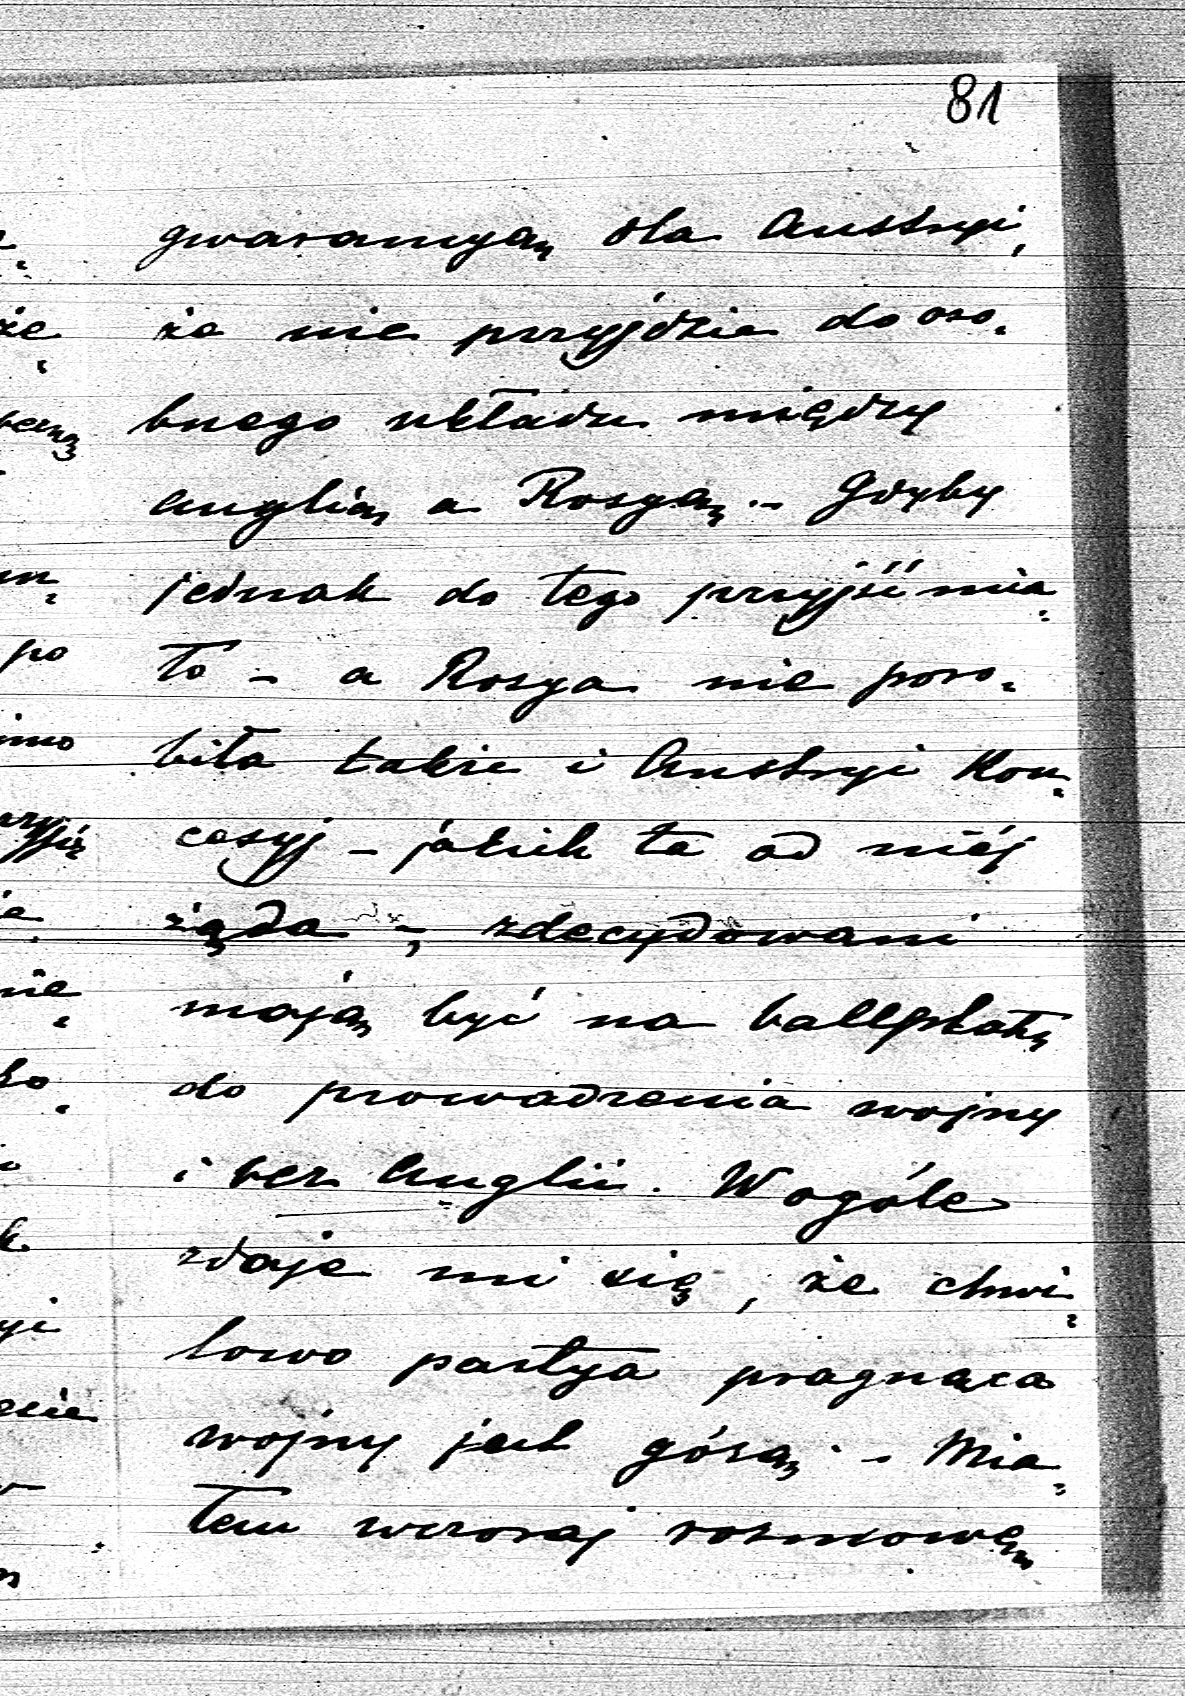 81
gwarancyą dla Austryi,
że nie przyjdzie do oso-
bnego układu między
Anglią a Rosyą. - Gdyby
jednak do tego przyjść mia-
ło - a Rosya nie poro-
biła także i Austryi kon-
cesyj - jakich ta od niéj
żąda -, zdecydowani
mają być na ballplatzu
do prowadzenia wojny
i bez Anglii. W ogóle
zdaje mi się, że chwi-
lowo partya pragnąca
wojny jest górą. - Mia-
łem wczoraj rozmowę